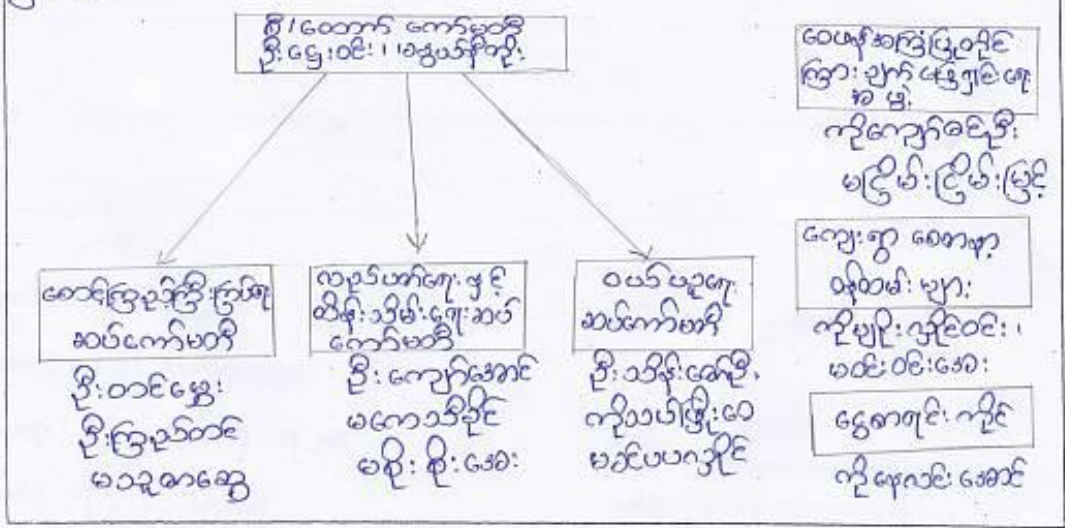 စီ/ထောက် ကော်မတီ
ဦးဌေးဝင်း၊ မနွယ်နီကိုး
စောင့်ကြည့်ကြီးကြပ်ရေး
ဆပ်ကော်မတီ
ဦးတင်မွှေး
ဦးကြည်တင်
မသူဇာဆွေ
လည်ပတ်ရေးနှင့်
ထိန်းသိမ်းရေးဆပ်
ကော်မတီ
ဦးကျော်အောင်
မကေသီခိုင်
မစိုးစိုးအေး
ဝယ်ယူရေး
ဆပ်ကော်မတီ
ဦးသိန်းဇော်ဦး
ကိုသပါဖြိုးဝေ
မခင်ပပလှိုင်
ဝေဖန်အကြံပြုတိုင်
ကြားချက် ဖြေရှင်းရေး
အဖွဲ့
ကိုကျော်မင်းဦး
မငြိမ်းငြိမ်းမြင့်
ကျေးရွာ စေတနာ့
ဝန်ထမ်းများ
ကိုမျိုးလှိုင်ဝင်း၊
မဝင်းဝင်းအေး
ငွေစာရင်းကိုင်
ကိုနေလင်းအောင်